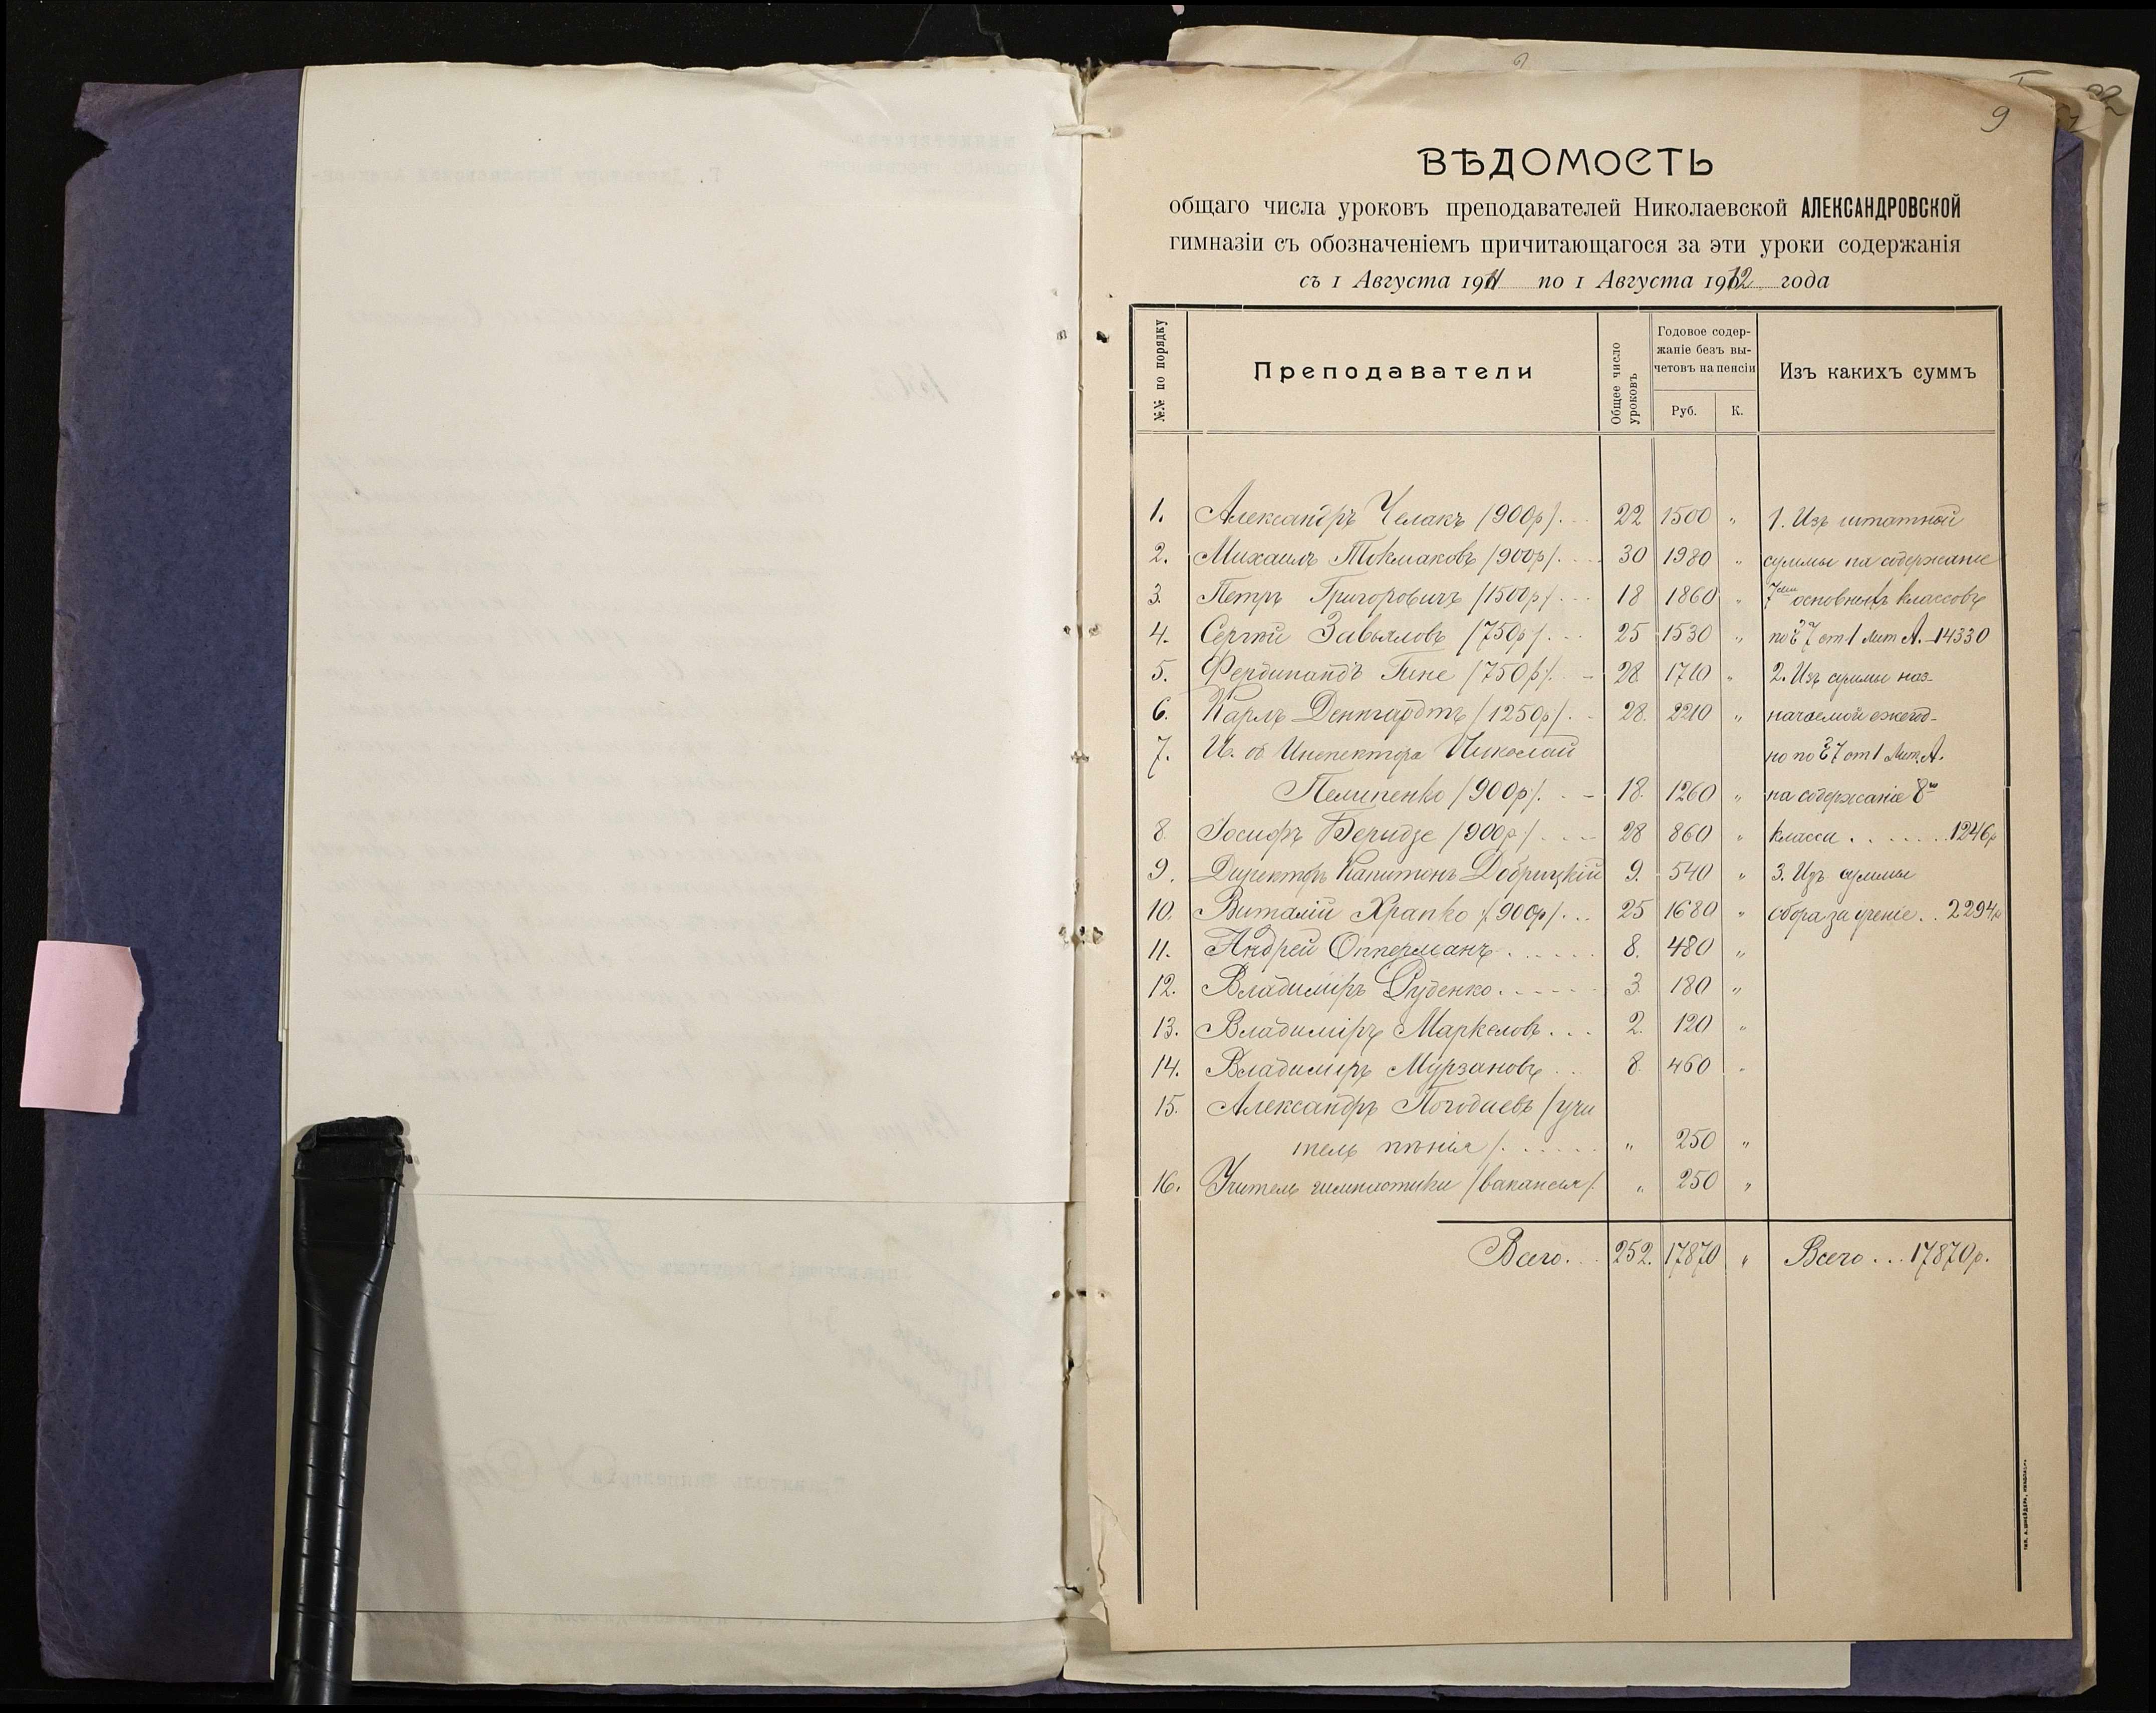 9
ВѢДОМОСТЬ
общаго числа уроковъ преподавателей Николаевской АЛЕКСАНДРОВСКОЙ
гимназіи съ обозначеніемъ причитающагося за эти уроки содержанія
съ 1 Августа 1911 по 1 Августа 1912 года
№№ по порядку
Преподаватели
Общее число уроковъ
Годовое содер-
жаніе безъ вы-
четовъ на пенсіи
Руб. К.
Изъ какихъ суммъ
1. Александръ Челакъ /900р/. 22 1500 " 1. Изъ штатной
2. Михаилъ Токмаковъ /900р/. 30 1980 " суммы на содержаніе
3. Петръ Григоровичъ /1500р/. 18 1860 " 7ми основныхъ классовъ
4. Сергѣй Завьяловъ /750р/. 25 1530 " 1 Лит А. 14330
5. Фердинандъ Гине /750р/. 28 1710 " 2. Изъ суммы наз-
6. Карлъ Денгардтъ /1250р/. 28. 2210 " начаемой ежегод-
7. И. об Инспектора Николай но по 1 Лит. А.
Пелипенко /900р/. 18. 1260 " на содержаніе 8го
8. Іосифъ Беридзе /900р/ 28 860 " класса . . . . . . 1246р
9. Директоръ Капитонъ Добрицкій 9. 540 " 3. Изъ суммы
10. Виталій Храпко /900р/. . . 25 1680 " сбора за ученіе. . 2294р
11. Андрей Опперманъ . . . . . . 8. 480 "
12. Владиміръ Руденко. 3. 180 "
13. Владиміръ Маркеловъ. . . 2. 120 "
14. Владиміръ Мурзановъ . . 8. 460 "
15. Александръ Погодаевъ /учи
тель пѣнія/. . . . . . " 250 "
16. Учитель гимнастики /вакансія/. " 250 "
Всего. . 252. 17870 " Всего . . . 17870р.